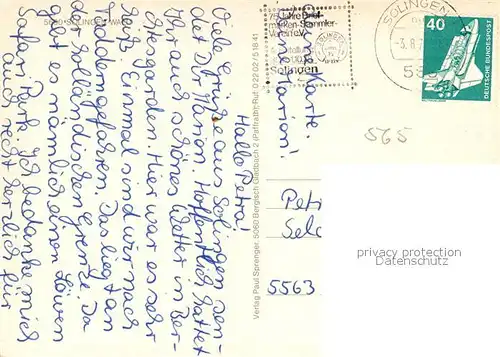 5650 SOLINGEN-WALD
Hallo Petra!
Viele Grüße aus Solingen sen-
det Dir Marion. Hoffentlich hattet
Ihr auch schönes Wetter in Ber-
chesgarden. Hier war es sehr
heiß. Einmal sind wir nach
Tüddern gefahren. Das liegt an
der Holländischen Grenze. Da
gibt nämlich einen Löwen
Safari Park. Ich bedanke mich
auch recht herzlich für
Karte.
Marion!
Verlag Paul Sprenger, 5060 Bergisch Gladbach 2 (Paffrath), Ruf 0 22 02 / 5 18 41
75 Jahre Brief-
marken-Sammler-
Verein e.V.
Solingen
SOLINGEN
40
DEUTSCHE BUNDESPOST
565
Peti
Selc
5563
privacy protection
Datenschutz